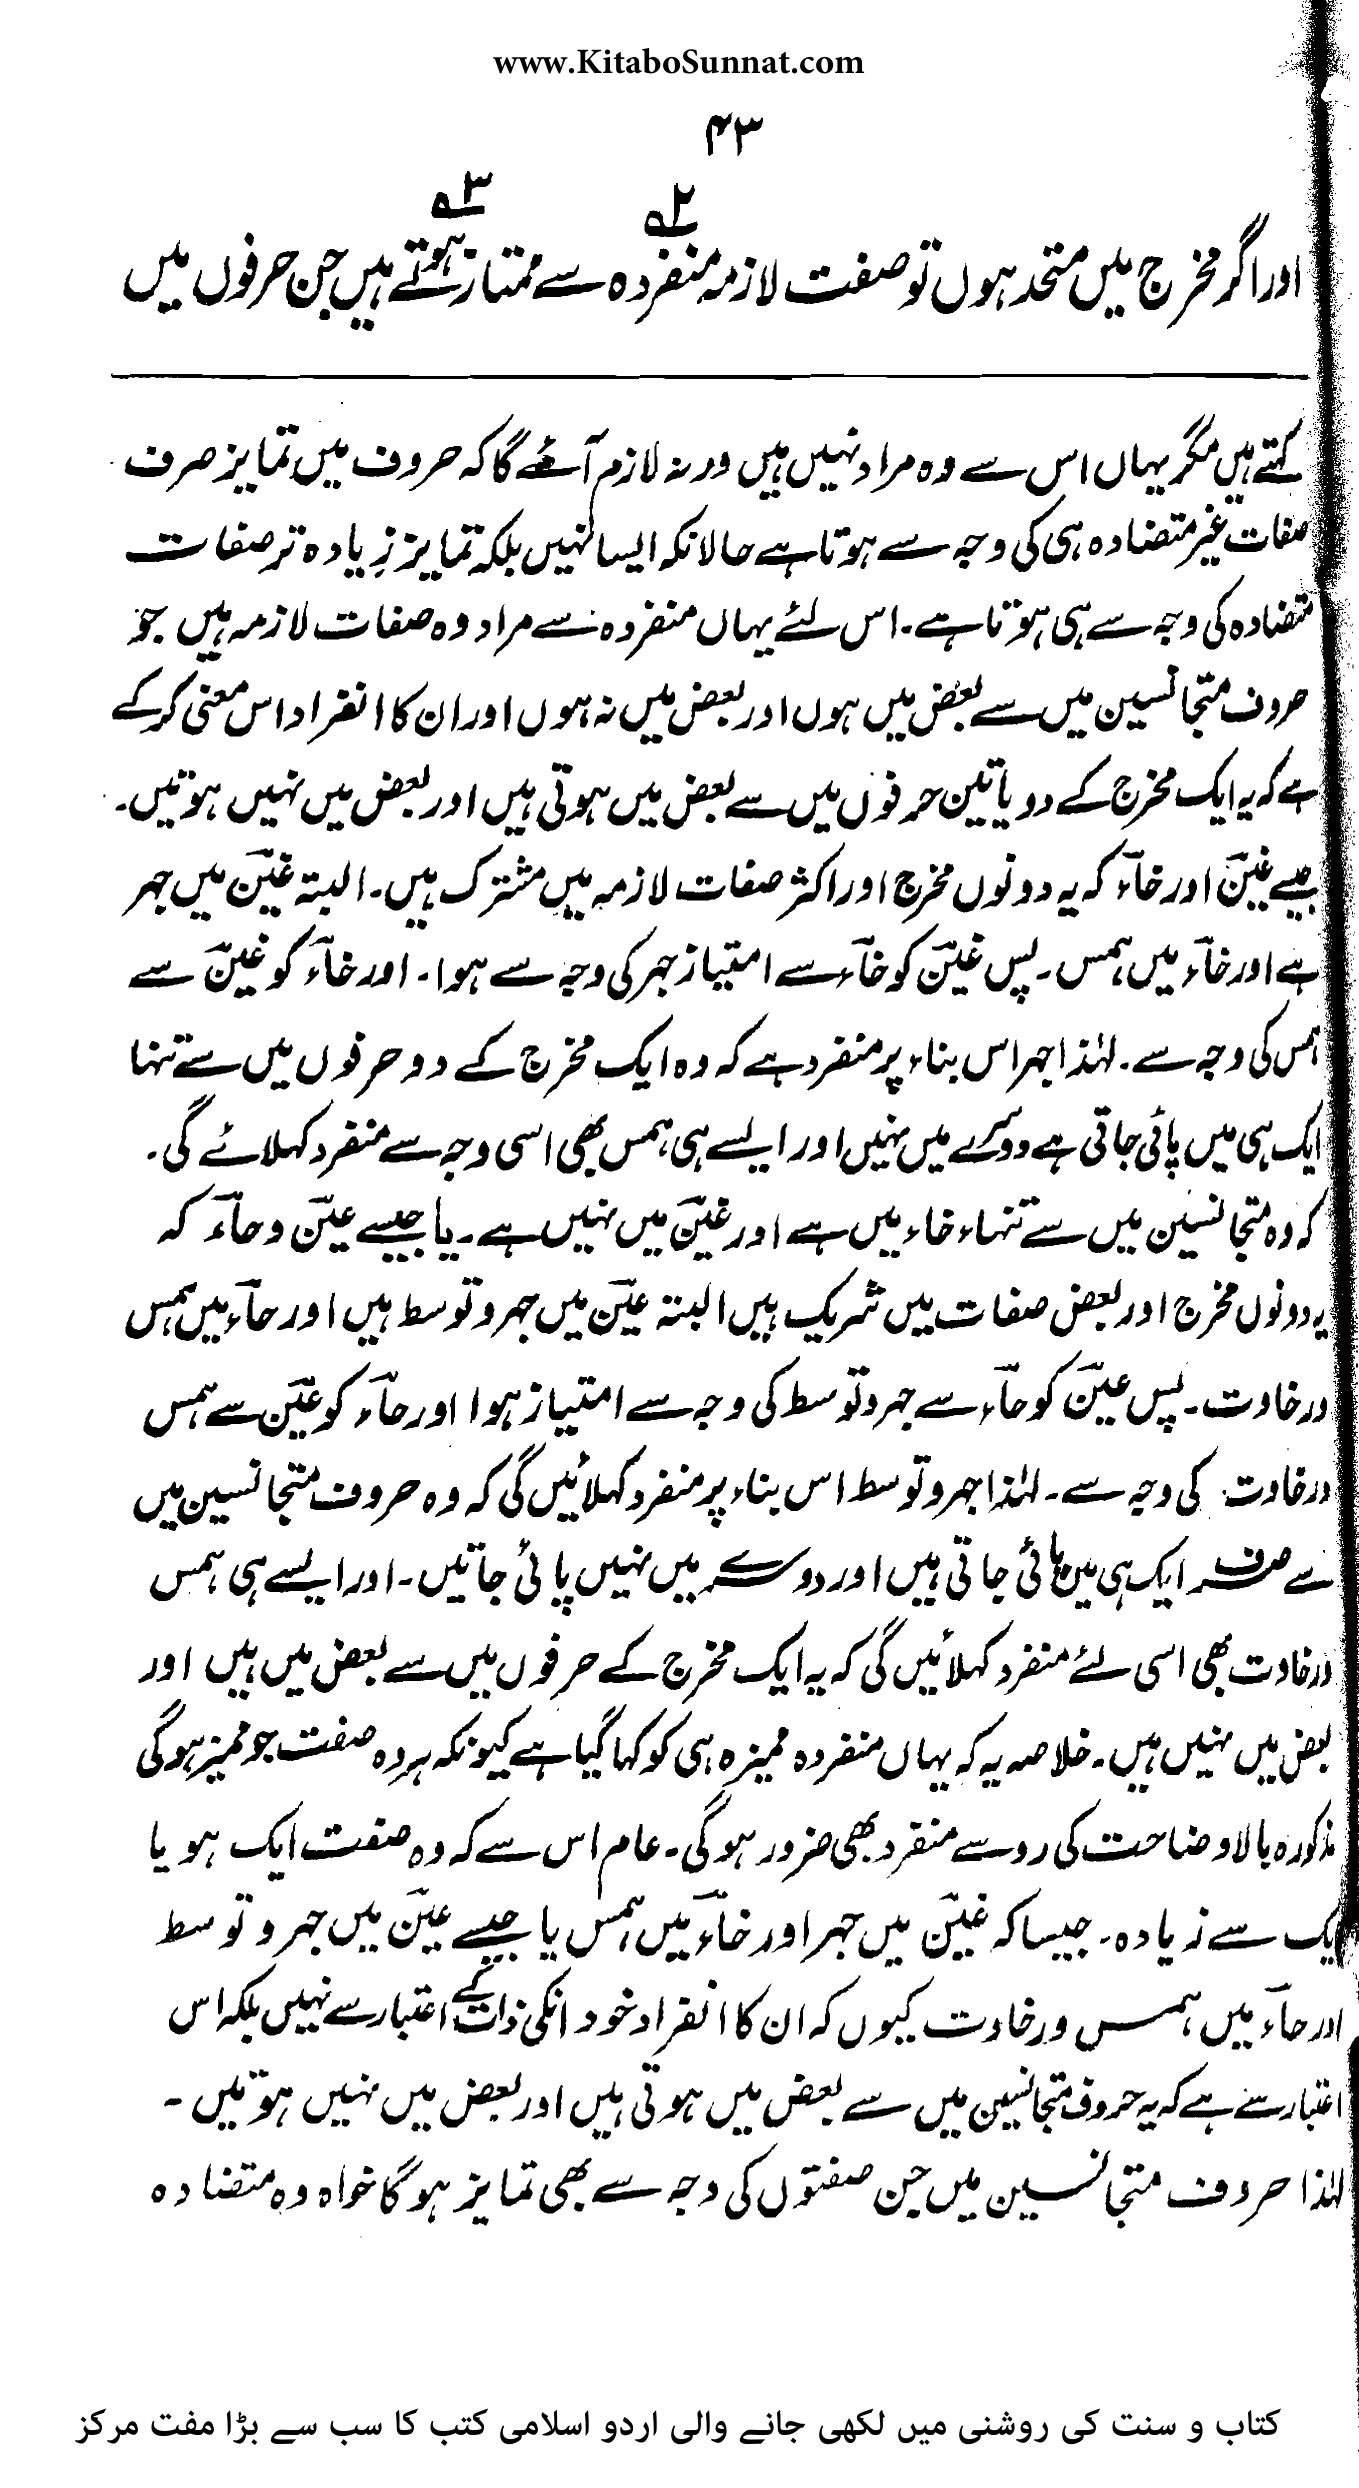 www.KitaboSunnat.com
۴۳
اور اگر مخرج میں متحد ہوں تو صفت لازمہ منفردہ ۲؎ سے ممتاز ہوتے ۳؎ ہیں جن حرفوں میں
کہتے ہیں مگر یہاں اس سے وہ مراد نہیں ہیں ورنہ لازم آئے گا کہ حروف میں تمایز صرف
صفات غیر متضادہ ہی کی وجہ سے ہوتا ہے حالانکہ ایسا نہیں بلکہ تمایز زیادہ تر صفات
متضادہ کی وجہ سے ہی ہوتا ہے۔ اس لئے یہاں منفردہ سے مراد وہ صفات لازمہ ہیں جو
حروف متجانسین میں سے بعض میں ہوں اور بعض میں نہ ہوں اور ان کا انفراد اس معنی کر کے
ہے کہ یہ ایک مخرج کے دو یا تین حرفوں میں سے بعض میں ہوتی ہیں اور بعض میں نہیں ہوتیں۔
جیسے غینؔ اور خآء کہ یہ دونوں مخرج اور اکثر صفات لازمہ میں مشترک ہیں۔ البتہ غینؔ میں جہر
ہے اور خآء میں ہمس۔ پس غینؔ کو خآء سے امتیاز جہر کی وجہ سے ہوا۔ اور خآء کو غینؔ سے
ہمس کی وجہ سے۔ لہٰذا جہر اس بناء پر منفرد ہے کہ وہ ایک مخرج کے دو حرفوں میں سے تنہا
ایک ہی میں پائی جاتی ہے دوسرے میں نہیں اور ایسے ہی ہمس بھی اسی وجہ سے منفرد کہلائے گی۔
کہ وہ متجانسین میں سے تنہاء خاء میں ہے اور غینؔ میں نہیں ہے۔ یا جیسے عینؔ و حآء کہ
یہ دونوں مخرج اور بعض صفات میں شریک ہیں البتہ عینؔ میں جہر و توسط ہیں اور حآء میں ہمس
ورخاوت۔ پس عینؔ کو حآء سے جہر و توسط کی وجہ سے امتیاز ہوا اور حآء کو عینؔ سے ہمس
ورخاوت کی وجہ سے۔ لہٰذا جہر و توسط اس بناء پر منفرد کہلائیں گی کہ وہ حروف متجانسین میں
سے صرف ایک ہی میں پائی جاتی ہیں اور دوسرے میں نہیں پائی جاتیں۔ اور ایسے ہی ہمس
ورخاوت بھی اسی لئے منفرد کہلائیں گی کہ یہ ایک مخرج کے حرفوں میں سے بعض میں ہیں اور
بعض میں نہیں ہیں۔ خلاصہ یہ کہ یہاں منفردہ ممیزہ ہی کو کہا گیا ہے کیونکہ ہر وہ صفت جو ممیز ہوگی
مذکورہ بالا وضاحت کی رو سے منفرد بھی ضرور ہوگی۔ عام اس سے کہ وہ صفت ایک ہو یا
یک سے زیادہ۔ جیسا کہ غینؔ میں جہر اور خآء میں ہمس یا جیسے عینؔ میں جہر و توسط
اور حآء میں ہمس ورخاوت کیوں کہ ان کا انفراد خود انکی ذات کے اعتبار سے نہیں بلکہ اس
اعتبار سے ہے کہ یہ حروف متجانسین میں سے بعض میں ہوتی ہیں اور بعض میں نہیں ہوتیں ۔
لہٰذا حروف متجانسین میں جن صفتوں کی وجہ سے بھی تمایز ہوگا خواہ وہ متضادہ
کتاب و سنت کی روشنی میں لکھی جانے والی اردو اسلامی کتب کا سب سے بڑا مفت مرکز